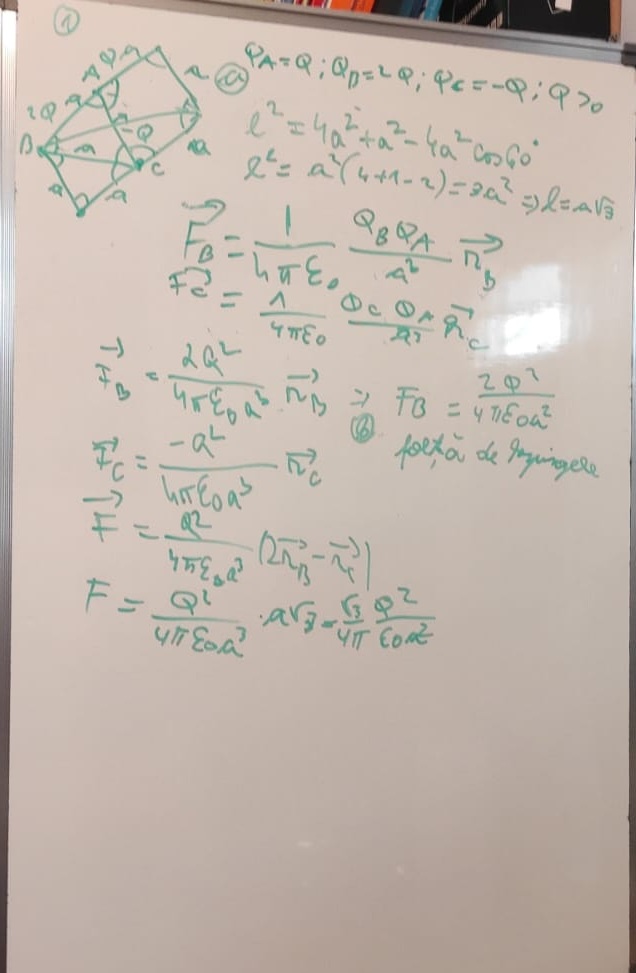 ①
Q_A = Q ; Q_B = 2Q ; Q_C = -Q ; Q > 0
a
l² = 4a² + a² - 4a² cos 60°
l² = a²(4+1-2) = 3a² ⇒ l = a√3
A
a
a
2Q
a
a
-Q
B
a
C
a
a
a
F_B⃗ = 1/(4πε₀) Q_B Q_A/a³ r_B⃗
F_C⃗ = 1/(4πε₀) Q_C Q_A/a³ r_C⃗
F_B⃗ = 2Q²/(4πε₀a³) r_B⃗ ⇒ F_B = 2Q²/(4πε₀a²)
b forță de respingere
F_C⃗ = -Q²/(4πε₀a³) r_C⃗
F⃗ = Q²/(4πε₀a³) (2r_B⃗ - r_C⃗)
F = Q²/(4πε₀a³) · a√3 = √3/4π Q²/(ε₀a²)